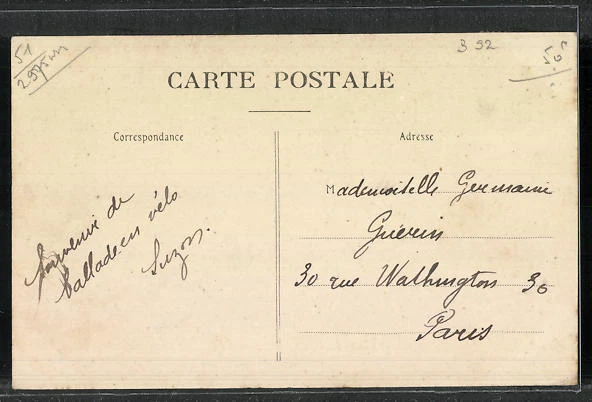 51
B 92
CARTE POSTALE
Correspondance
Adresse
Souvenir de
ballade en vélo
Suzon.
Mademoiselle Germaine
Guérin
30 rue Wathington 30
Paris